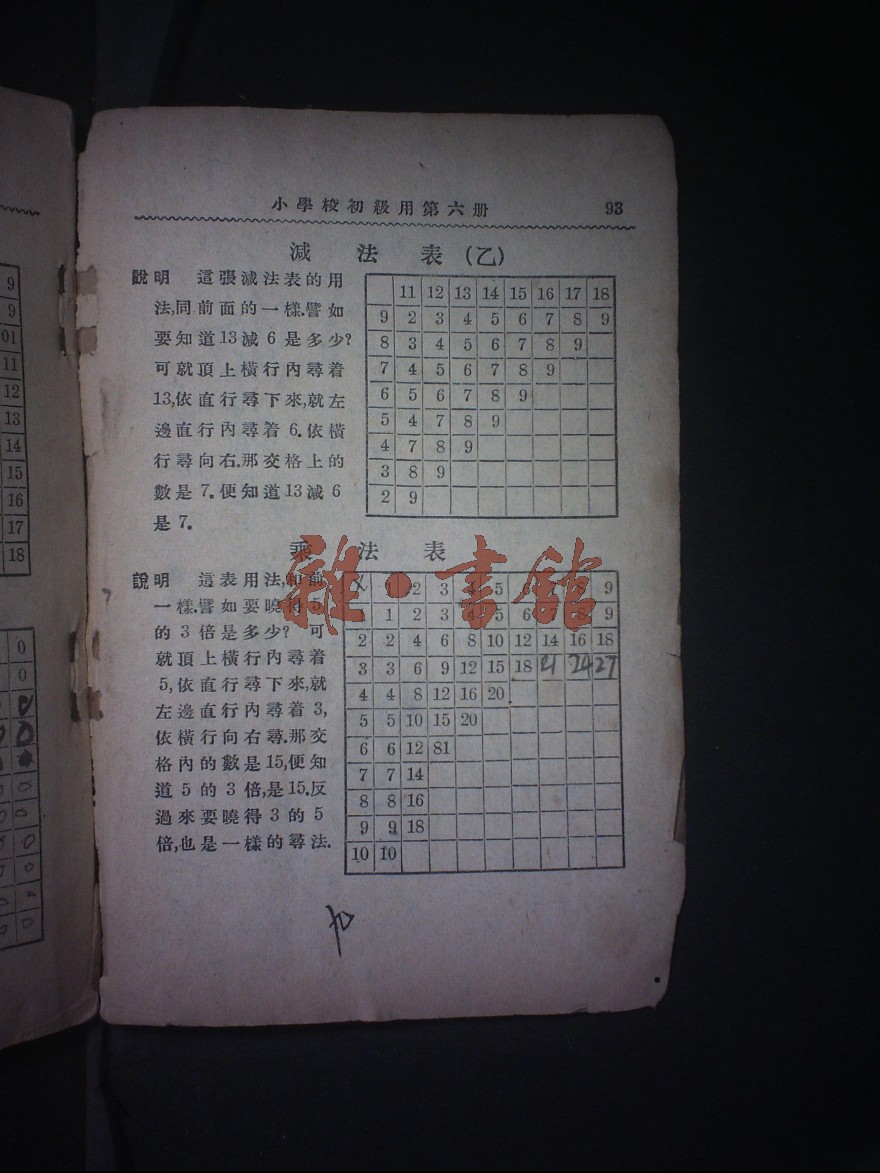 小學校初級用第六册 93
減法表(乙)
說明 這張減法表的用
法,同前面的一樣.譬如
要知道13減6是多少?
可就頂上橫行內尋着
13,依直行尋下來,就左
邊直行內尋着6.依橫
行尋向右.那交格上的
數是7.便知道13減6
是7.
11 12 13 14 15 16 17 18
9 2 3 4 5 6 7 8 9
8 3 4 5 6 7 8 9
7 4 5 6 7 8 9
6 5 6 7 8 9
5 4 7 8 9
4 7 8 9
3 8 9
2 9
乘法表
說明 這表用法,和前
一樣.譬如要曉得5
的3倍是多少? 可
就頂上橫行內尋着
5,依直行尋下來,就
左邊直行內尋着3,
依橫行向右尋.那交
格內的數是15,便知
道5的3倍,是15.反
過來要曉得3的5
倍,也是一樣的尋法.
× 1 2 3 4 5 6 8 9
1 2 3 4 5 6 8 9
2 2 4 6 8 10 12 14 16 18
3 3 6 9 12 15 18 21 24 27
4 4 8 12 16 20
5 5 10 15 20
6 6 12 81
7 7 14
8 8 16
9 9 18
10 10
雜·書館
9
9
01
11
12
13
14
15
16
17
18
0
0